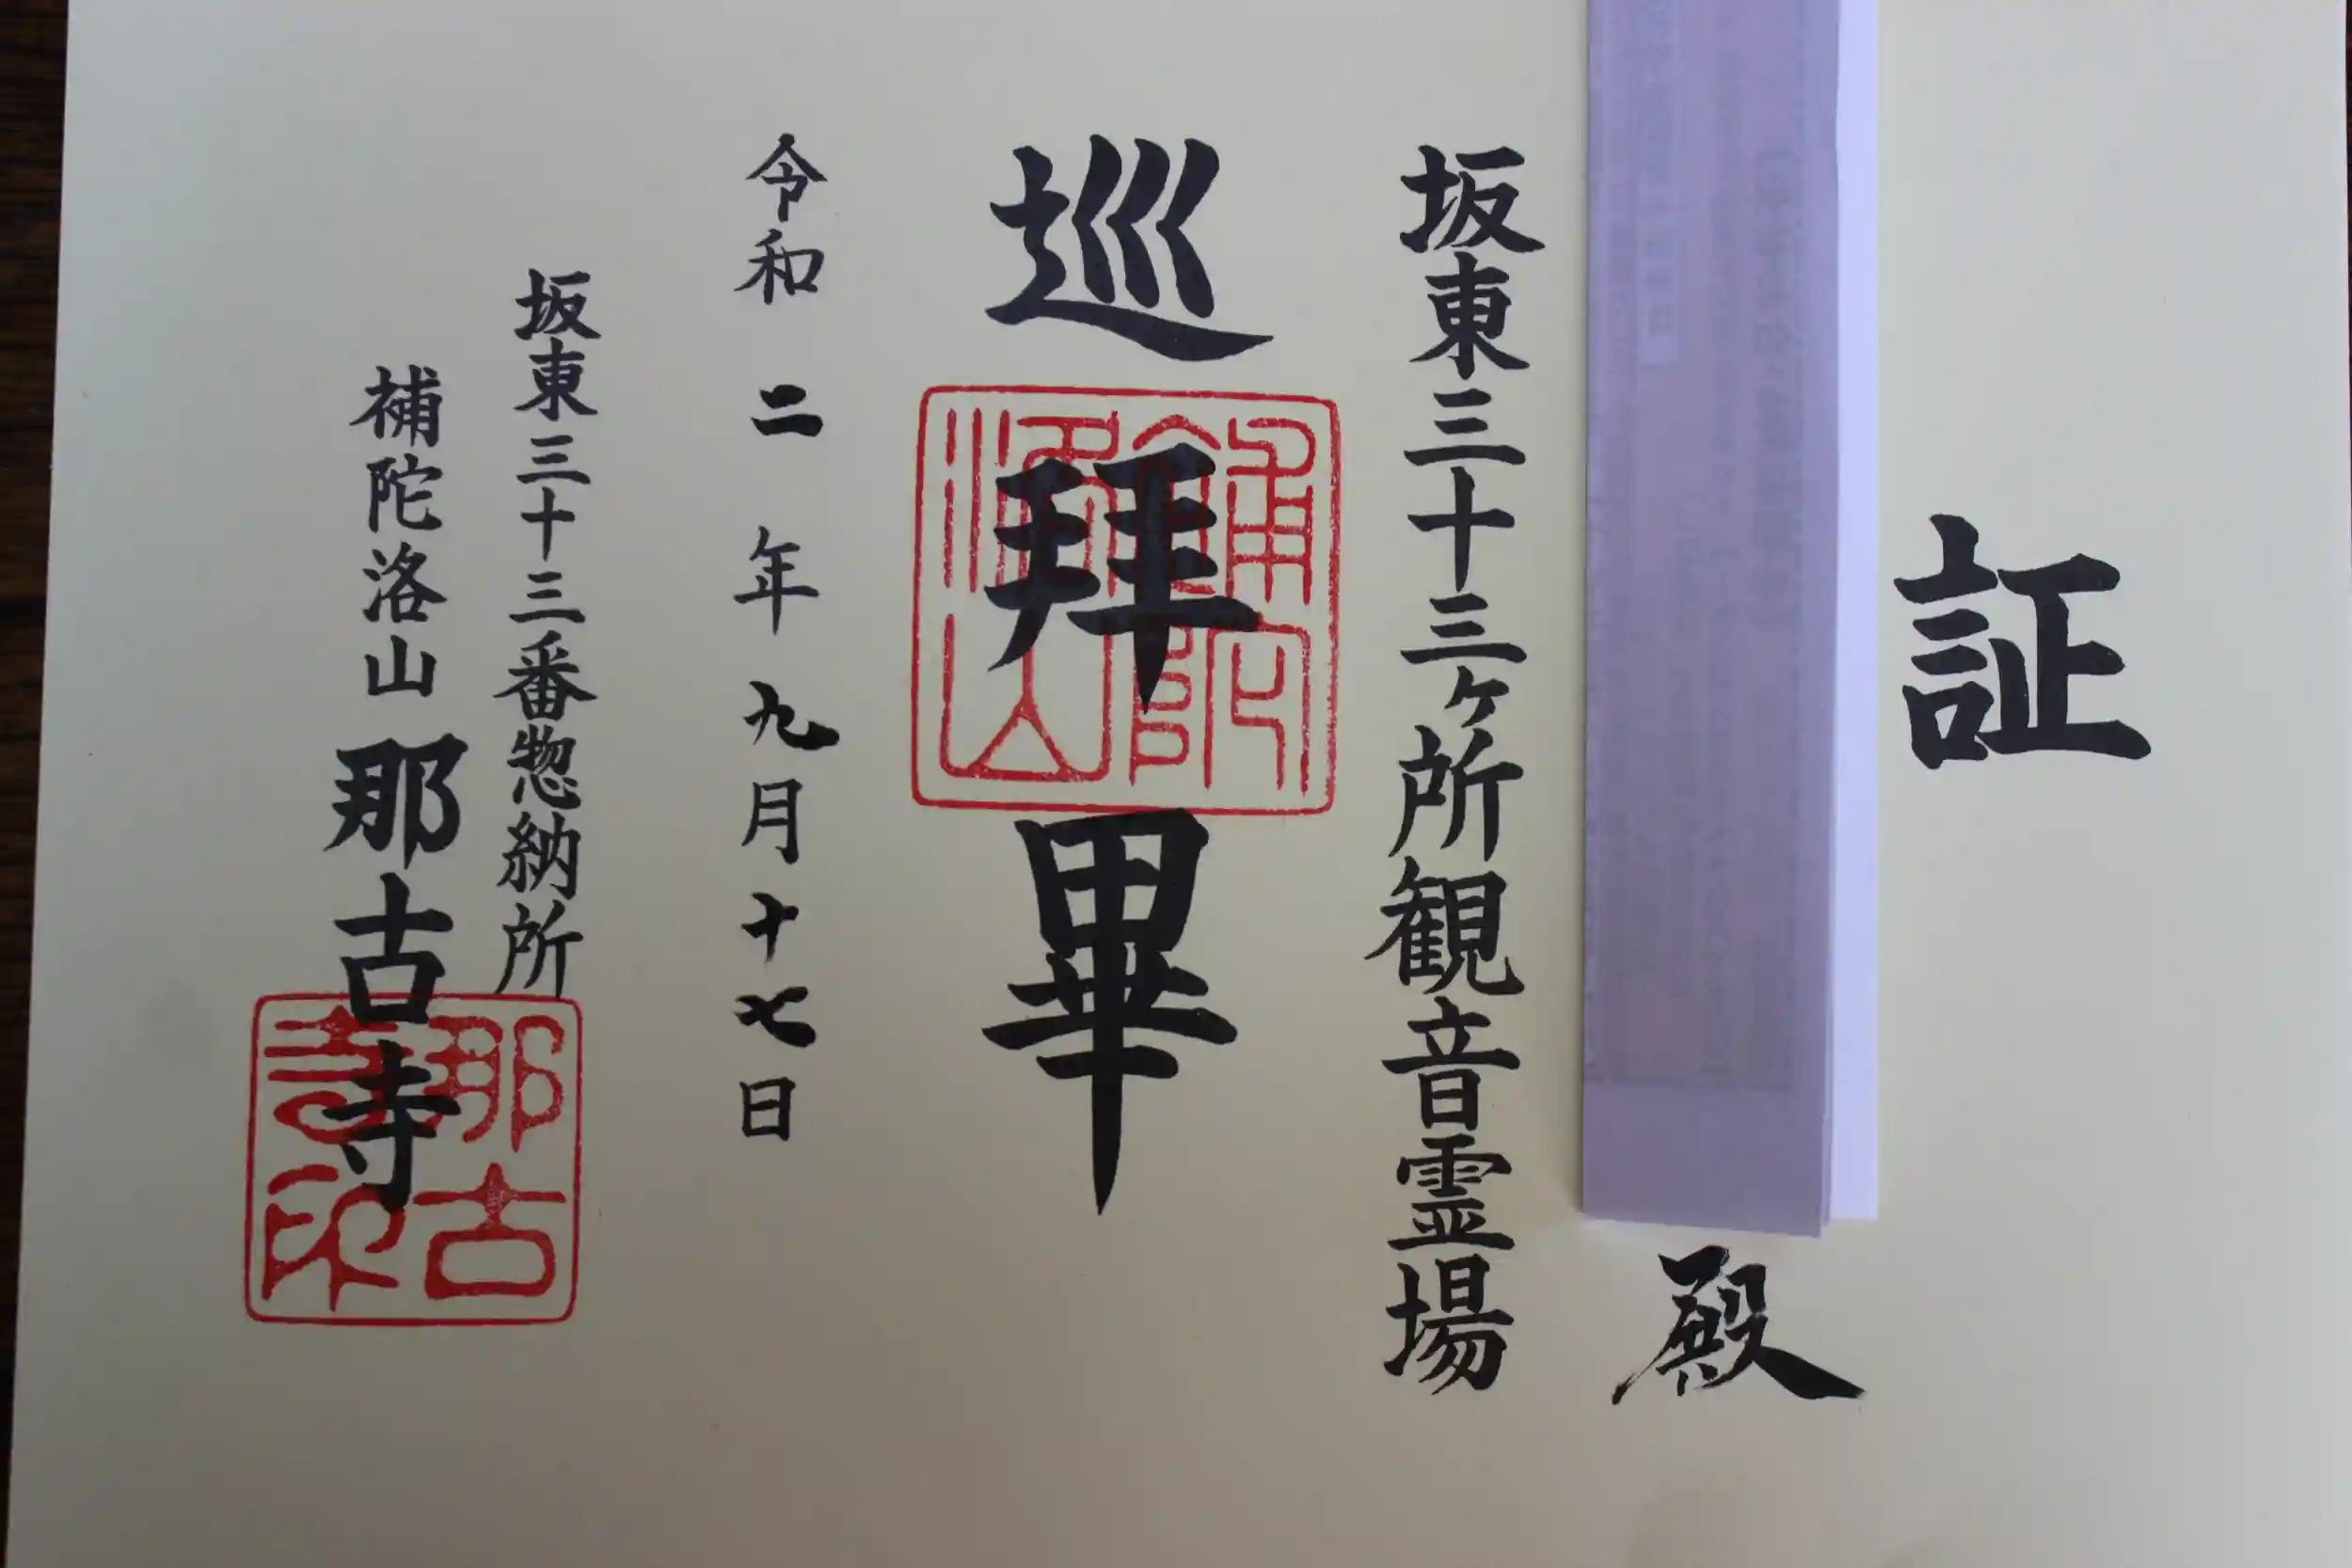 証
殿
坂東三十三ヶ所観音霊場
巡拜畢
令和二年九月十七日
坂東三十三番惣納所
補陀洛山那古寺
那古寺印